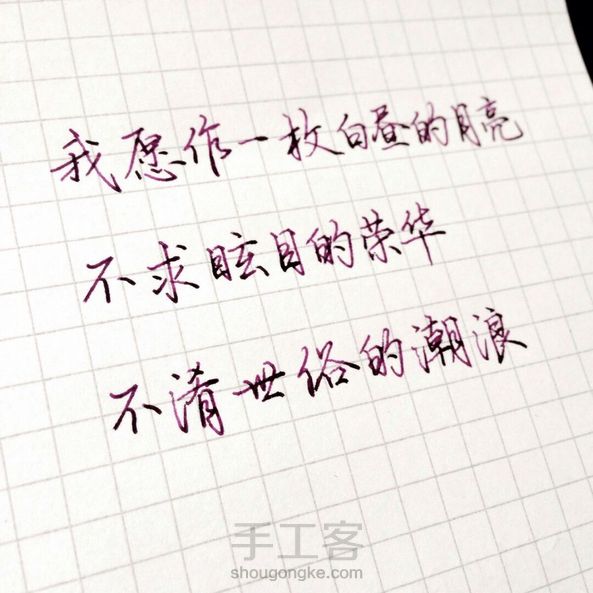 我愿作一枚白昼的月亮
不求眩目的荣华
不淆世俗的潮浪
手工客
shougongke.com